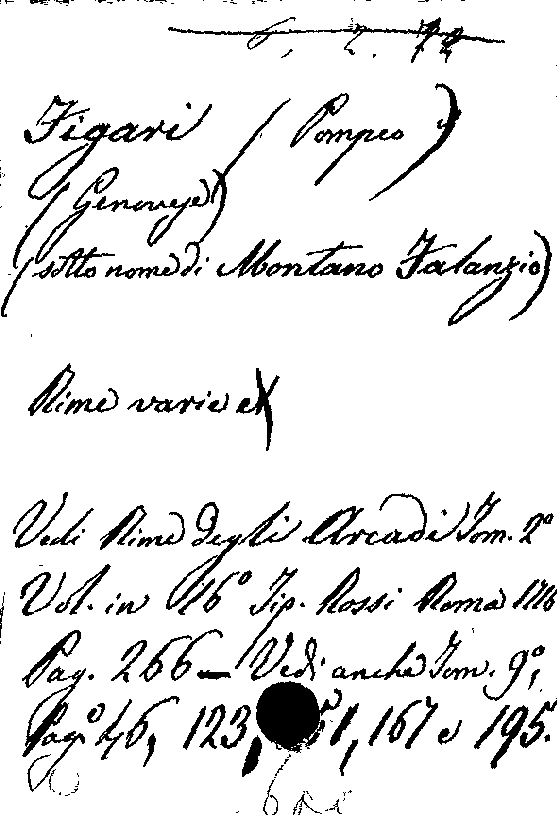 Figari (Pompeo)
(Genovese)
(sotto nome di Montano Falanzio)
Rime varie
Vedi Rime degli Arcadi Tom. 2°
Vol. in 16° Tip. Rossi Roma
Pag. 266 — Vedi anche Tom. 9°,
Pag. 46, 123, 167 e 195.